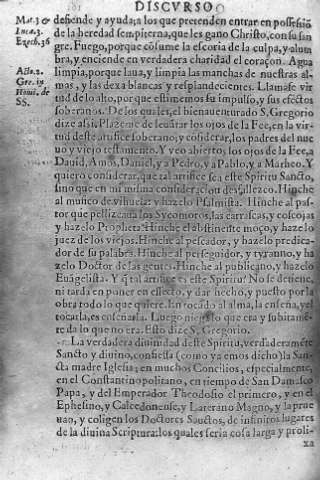 DISCVRSO
Mat. 3 &
Luca. 3.
Ezech. 36
Acto. 2.
Gre. in
Homi. de
SS.
defiende y ayuda; a los que pretenden entrar en possessiō
de la heredad sempiterna, que les gano Christo, con su san
gre. Fuego, porque cōsume la escoria de la culpa, y alum
bra, y enciende en verdadera charidad el coraçon. Agua
limpia, porque laua, y limpia las manchas de nuestras al-
mas, y las dexa blancas y resplandecientes. Llamase vir
tud de lo alto, por que estimemos su impulso, y sus efectos
soberanos. De los quales, el bienauenturado S. Gregorio
dize assi, Plazeme de leuātar los ojos de la Fee, en la vir
tud deste artifice soberano; y cōsiderar, los padres del nue
uo y viejo testamento. Y veo abiertos los ojos de la Fee, a
Dauid, Amos, Daniel, y a Pedro, y a Pablo, y a Matheo. Y
quiero considerar, que tal artifice sea este Spiritu Sancto,
sino que en mi misma consideraciō desfallezco. Hinche
al muñico de vihuela: y hazelo Psalmista. Hinche al pas-
tor que pellizcaua los Sycomoros, las carrascas, y coscojas
y hazelo Propheta: Hinche el obstinente moço, y hazelo
juez de los viejos. Hinche al pescador, y hazelo predica-
dor de su palabra. Hinche al perseguidor, y tyranno, y ha
zelo Doctor de las gentes. Hinche al publicano, y hazelo
Euāgelista. Y q̃ tal artifice es este Spiritu? No se detiene,
ni tarda en poner en effecto, y dar hecho, y puesto por la
obra todo lo que quiere. En tocādo al alma, la enseña, y el
tocarla, es enseñarla. Luego niega lo que era y subitamē-
te da lo que no era. Esto dize S. Gregorio.
La verdadera diuinidad deste Spiritu, verdaderamēte
Sancto y diuino, confiessa (como ya emos dicho) la San-
cta madre Iglesia; en muchos Concilios, especialmente,
en el Constantinopolitano, en tiempo de San Damaso
Papa, y del Emperador Theodosio el primero, y en el
Ephesino, y Calcedonense, y Laterano Magno, y la prue
uan, y coligen los Doctores Sanctos, de infinitos lugares
de la diuina Scriptura: los quales seria cosa larga y proli-
xa